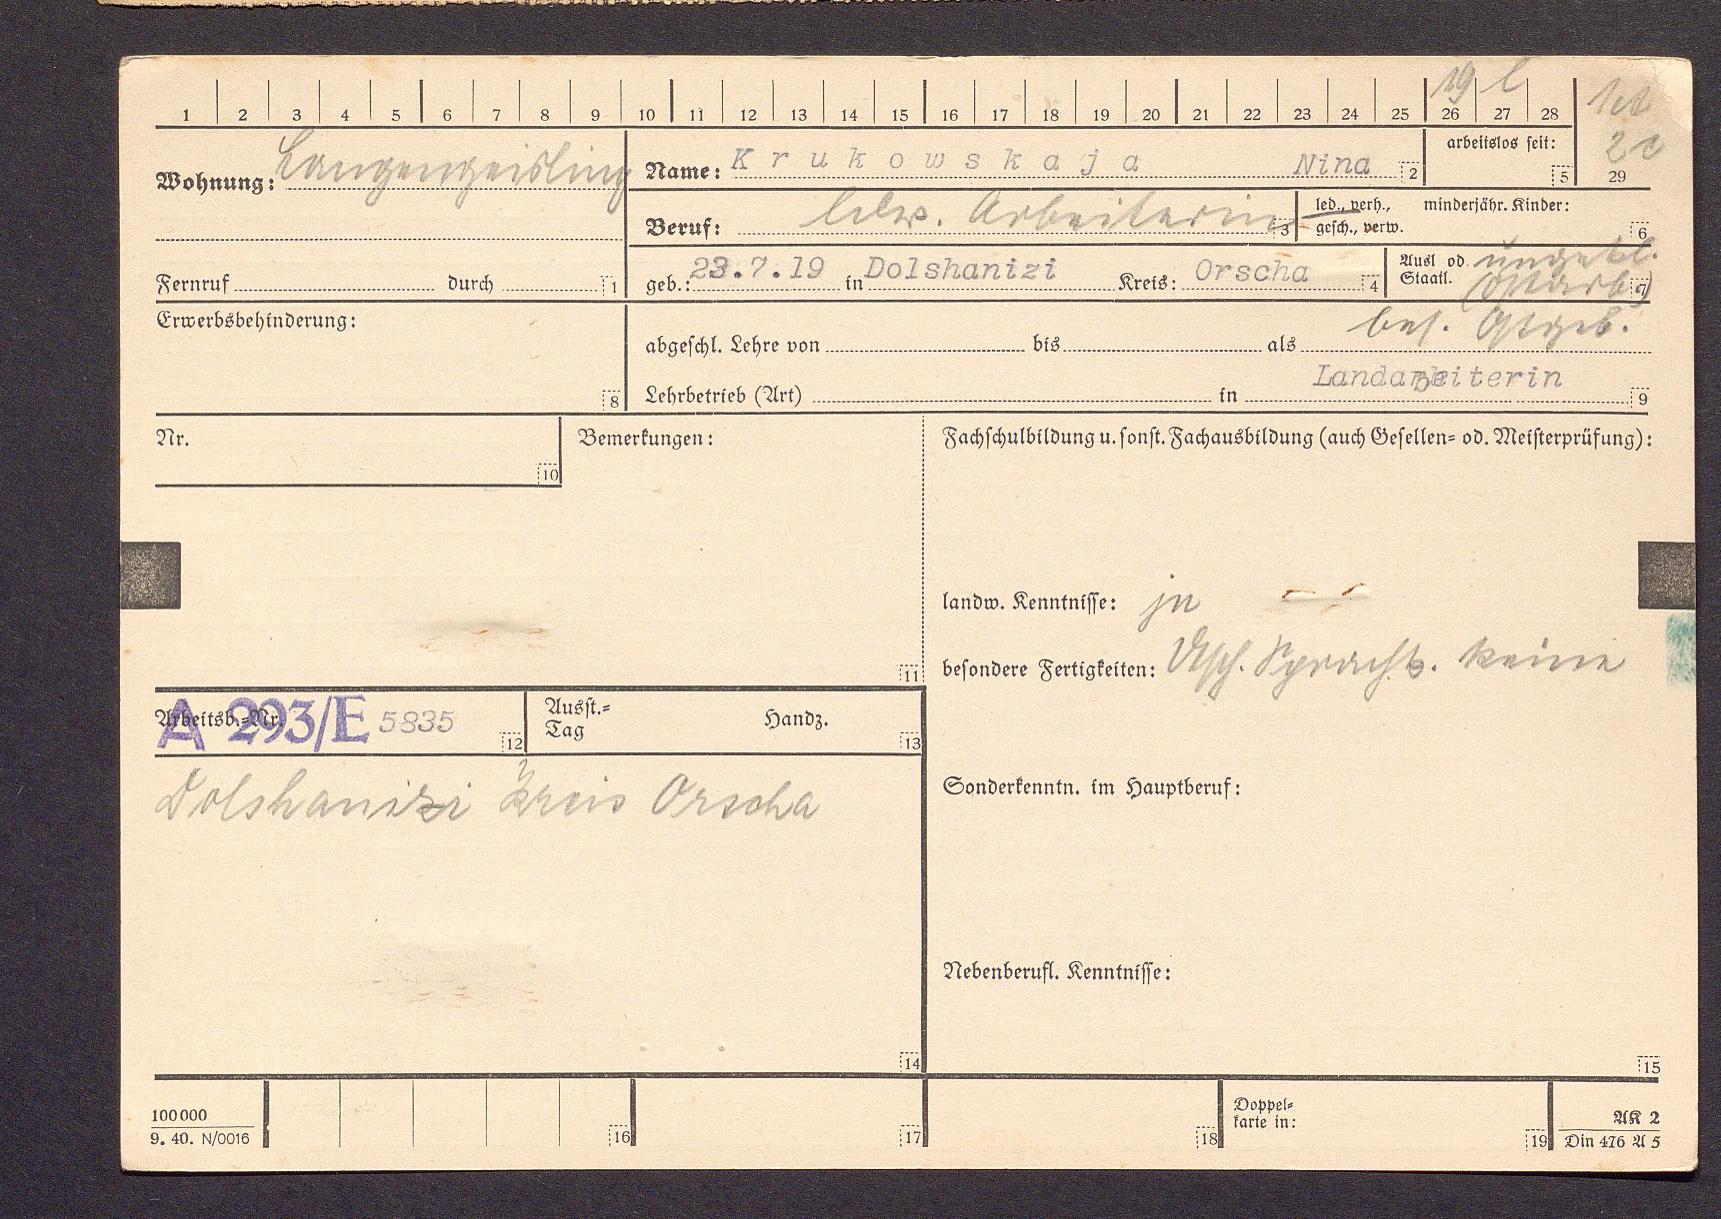 19 l
1 2 3 4 5 6 7 8 9 10 11 12 13 14 15 16 17 18 19 20 21 22 23 24 25 26 27 28
29
Wohnung: Langengeisling
Name: Krukowskaja Nina 2
arbeitslos seit: 5
Beruf: ldw. Arbeiterin 3
led., verh., gesch., verw.
minderjähr. Kinder: 6
Fernruf durch 1
geb.: 23.7.19 in Dolshanizi Kreis: Orscha 4
Ausl od. Staatl. ungekl. (Ostarb.) 7
Erwerbsbehinderung: 8
bes. Ostgeb.
abgeschl. Lehre von bis als
Landarbeiterin
Lehrbetrieb (Art) in 9
Nr. 10
Bemerkungen: 11
Fachschulbildung u. sonst. Fachausbildung (auch Gesellen- od. Meisterprüfung):
landw. Kenntnisse: ja
besondere Fertigkeiten: Dtsch. Sprachk. keine
Arbeitsb.-Nr. A 293/E 5835 12
Ausst.-Tag Handz. 13
Dolshanizi Kreis Orscha
Sonderkenntn. im Hauptberuf:
Nebenberufl. Kenntnisse:
14
15
100000
9. 40. N/0016
16
17
18
Doppel-
karte in:
19
AK 2
Din 476 A 5